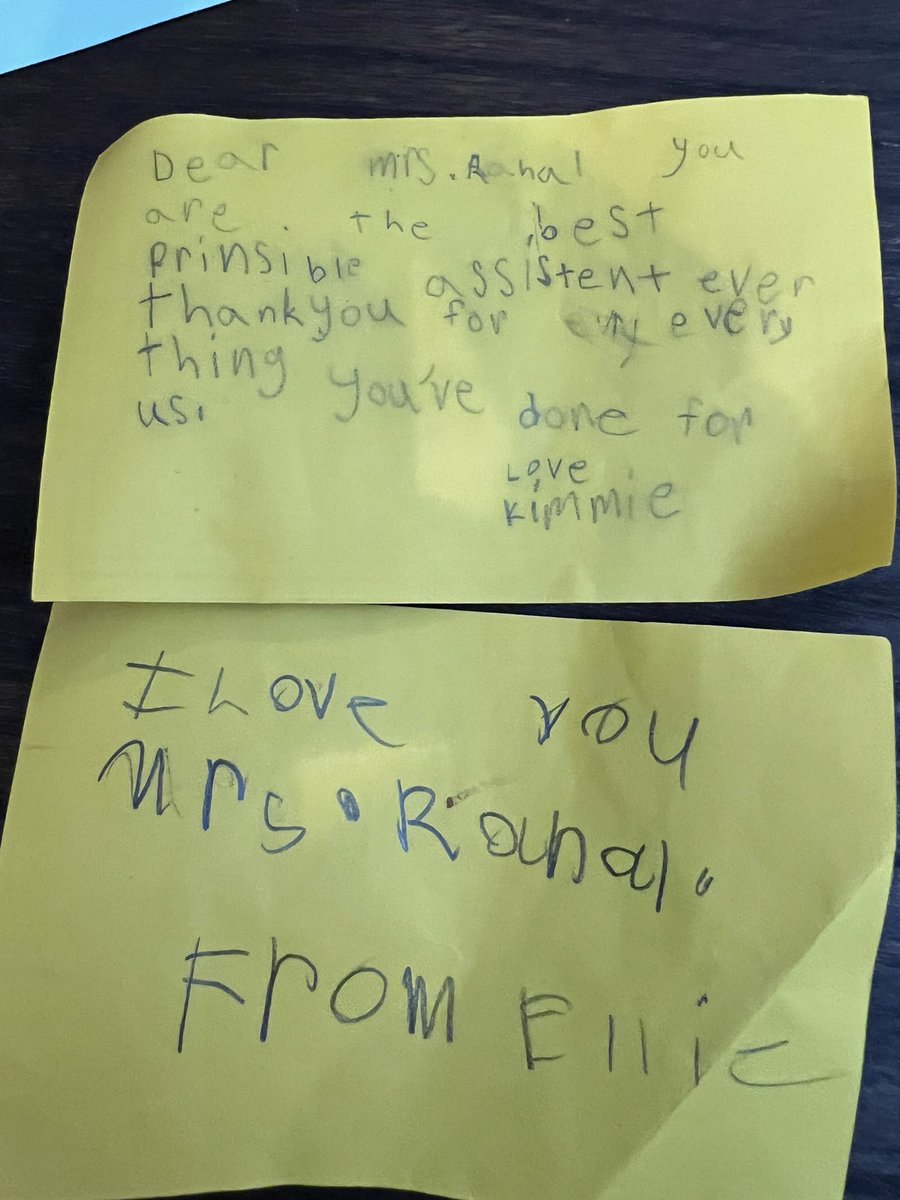 Dear mrs. Rahal you
are . the best
prinsible assistent ever
thankyou for every
thing you've done for
us.
Love
Kimmie
I Love you
Mrs. Rahal.
From Ellie